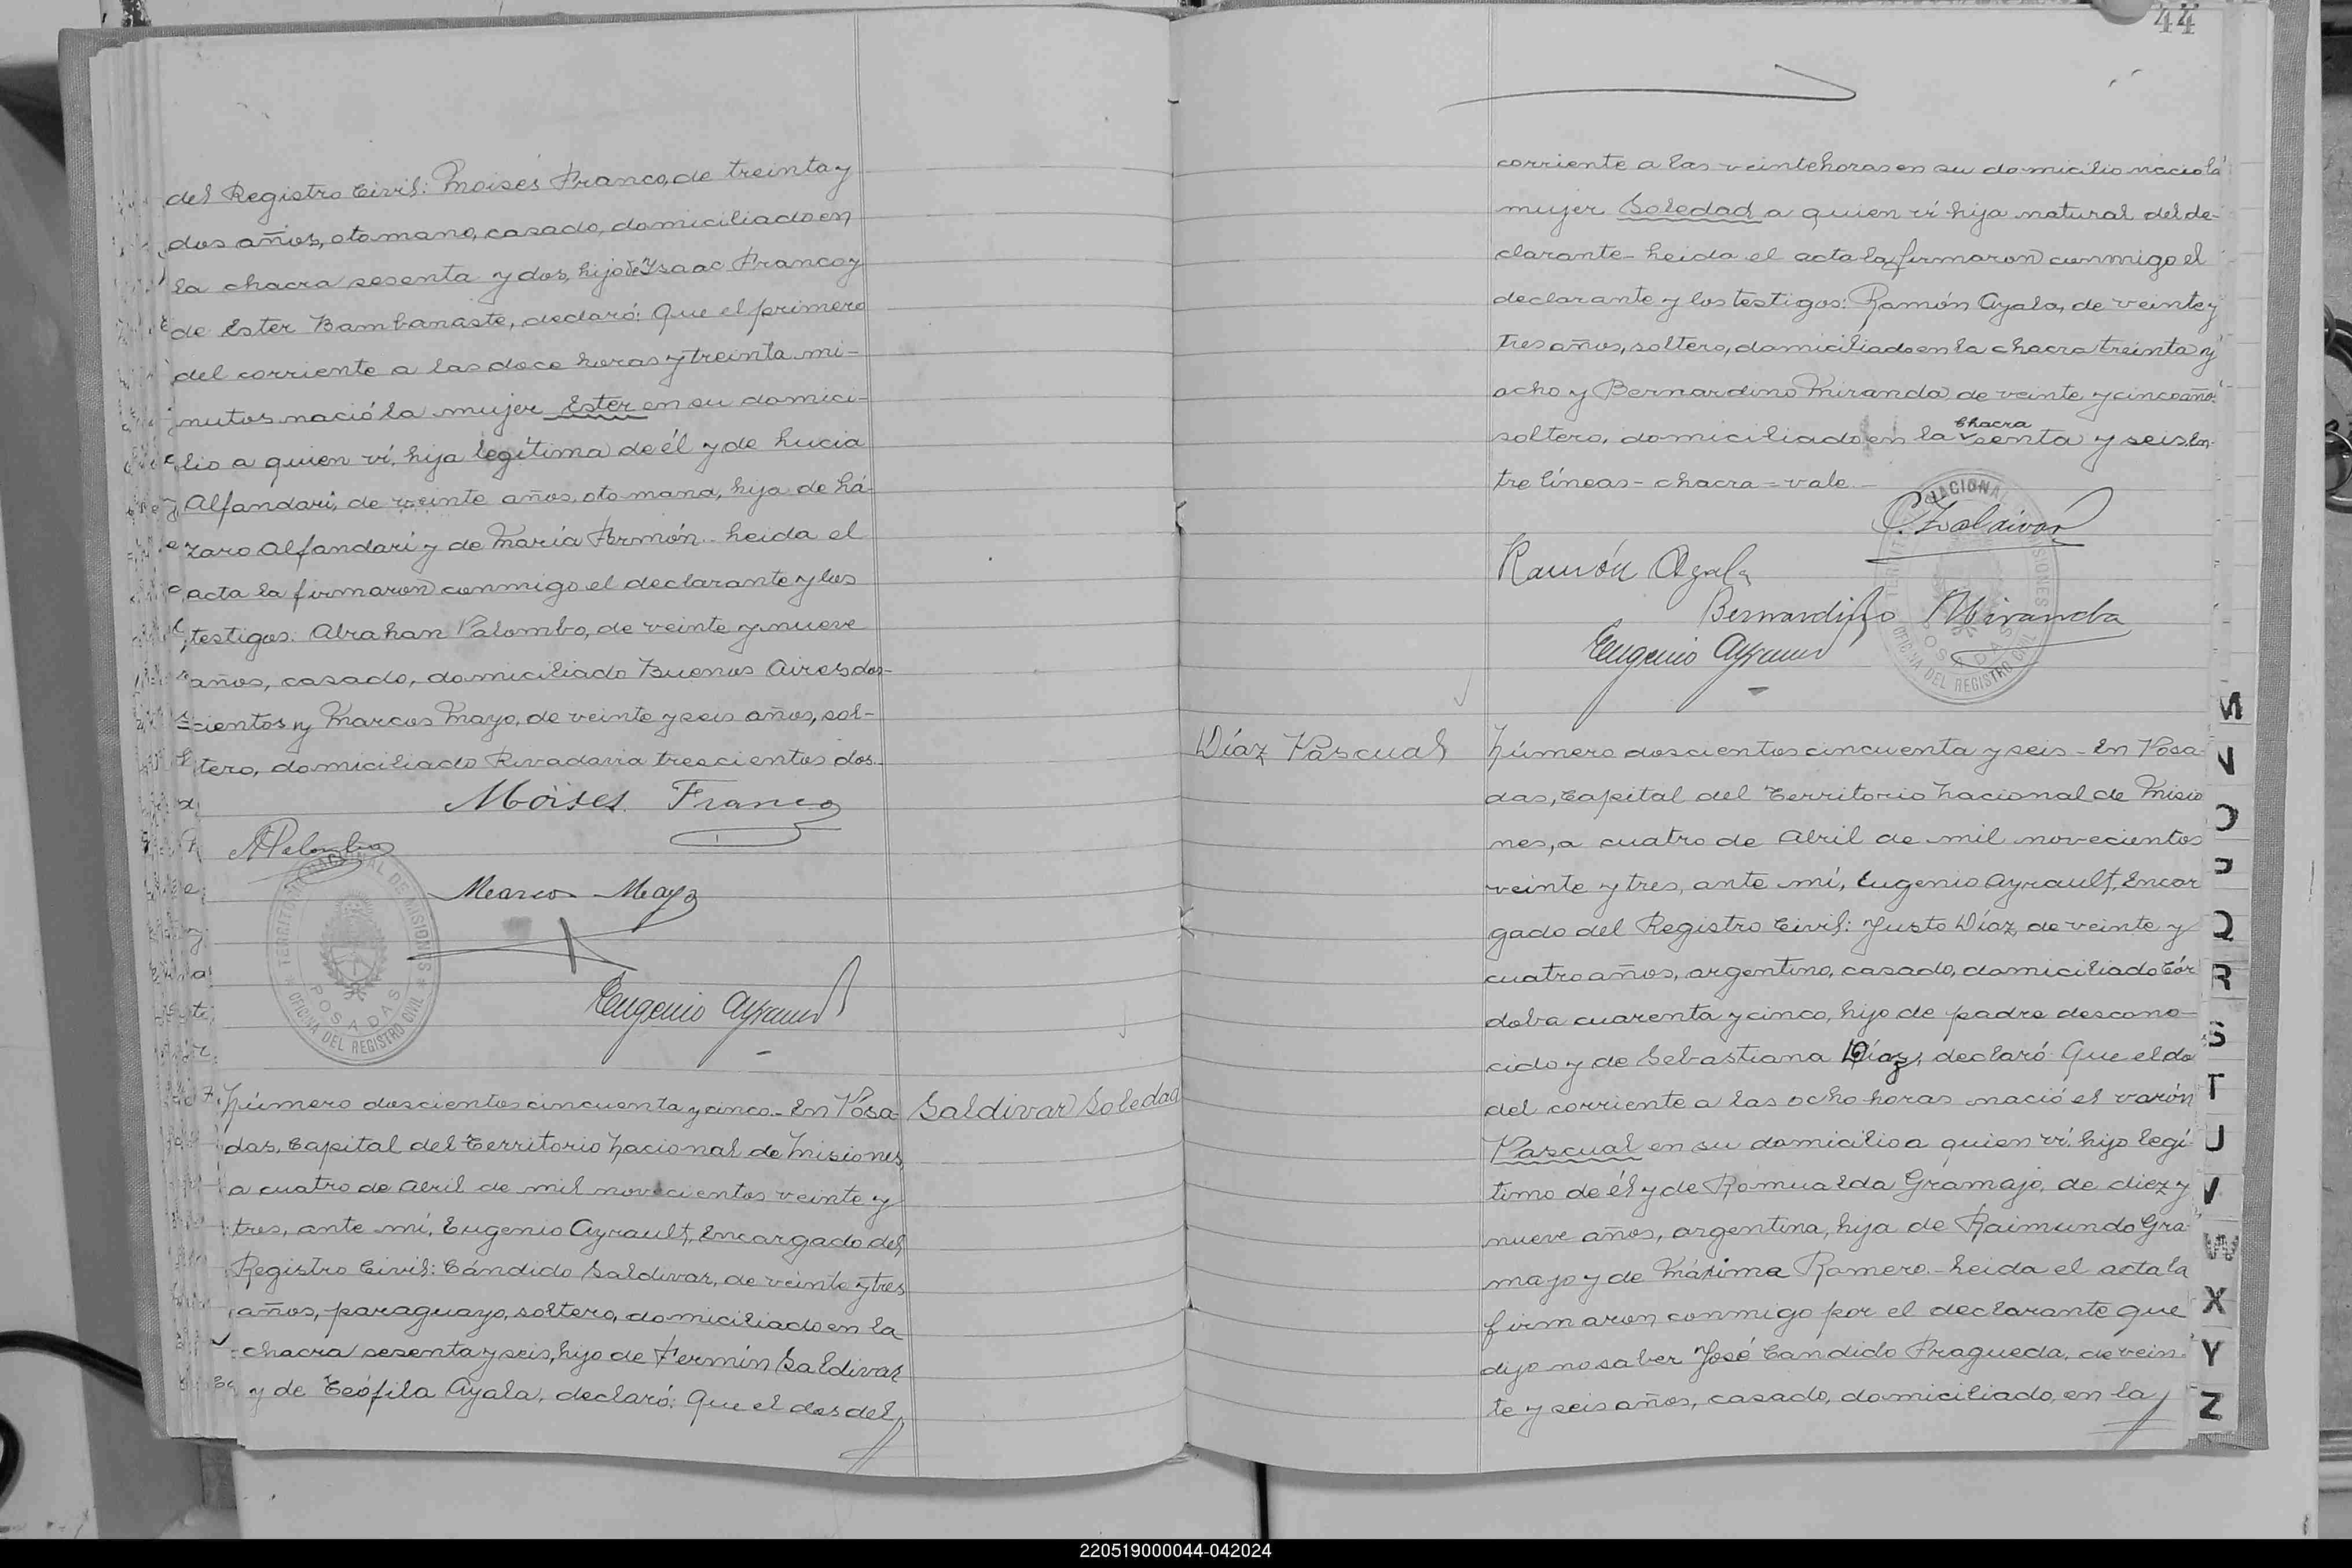 del Registro Civil: Moisés Franco, de treinta y
dos años, otomano, casado, domiciliado en
la chacra sesenta y dos, hijo de Ysaac Franco y
de Ester Bambanaste, declaró: Que el primero
del corriente a las doce horas y treinta mi-
nutos nació la mujer Ester en su domici-
lio a quien ví, hija legítima de él y de Lucia
Alfandari, de veinte años, otomana, hija de Lá-
zaro Alfandari y de María Armón. Leida el
acta la firmaron conmigo el declarante y los
testigos: Abrahan Palombo, de veinte y nueve
años, casado, domiciliado Buenos Aires dos-
cientos y Marcos Mayo, de veinte y seis años, sol-
tero, domiciliado Rivadavia trescientos dos.
Moises Franco
APalombo
Marcos Mayo
TERRITORIO NACIONAL DE MISIONES
POSADAS
OFICINA DEL REGISTRO CIVIL
Eugenio Ayrault
Número doscientos cincuenta y cinco.- En Posa-
Saldivar Soledad
das, Capital del Territorio Nacional de Misiones,
a cuatro de Abril de mil novecientos veinte y
tres, ante mí, Eugenio Ayrault, Encargado del
Registro Civil: Cándido Saldivar, de veinte y tres
años, paraguayo, soltero, domiciliado en la
chacra sesenta y seis, hijo de Fermín Saldivar
y de Teófila Ayala, declaró: Que el dos del
44
corriente a las veinte horas en su domicilio nació la
mujer Soledad a quien ví hija natural del de-
clarante- Leida el acta la firmaron conmigo el
declarante y los testigos: Ramón Ayala, de veinte y
tres años, soltero, domiciliado en la chacra treinta y
ocho y Bernardino Miranda de veinte y cinco años
chacra
soltero, domiciliado en la senta y seis. En-
tre líneas - chacra - vale.-
C. Zaldivar
Ramón Ayala
Bernardino Miranda
Eugenio Ayrault
TERRITORIO NACIONAL DE MISIONES
POSADAS
OFICINA DEL REGISTRO CIVIL
Díaz Pascual
Número doscientos cincuenta y seis - En Posa-
das, Capital del Territorio Nacional de Misio
nes, a cuatro de Abril de mil novecientos
veinte y tres, ante mí, Eugenio Ayrault, Encar
gado del Registro Civil: Justo Díaz, de veinte y
cuatro años, argentino, casado, domiciliado Cór
doba cuarenta y cinco, hijo de padre descono-
cido y de Sebastiana Díaz, declaró: Que el do
del corriente a las ocho horas nació el varón
Pascual en su domicilio a quien ví, hijo legí-
timo de él y de Romualda Gramajo, de diez y
nueve años, argentina, hija de Raimundo Gra-
majo y de Máxima Romero.- Leida el acta la
firmaron conmigo por el declarante que
dijo no saber José Candido Fragueda, de vein-
te y seis años, casado, domiciliado, en la
M
N
O
P
Q
R
S
T
U
V
W
X
Y
Z
220519000044-042024